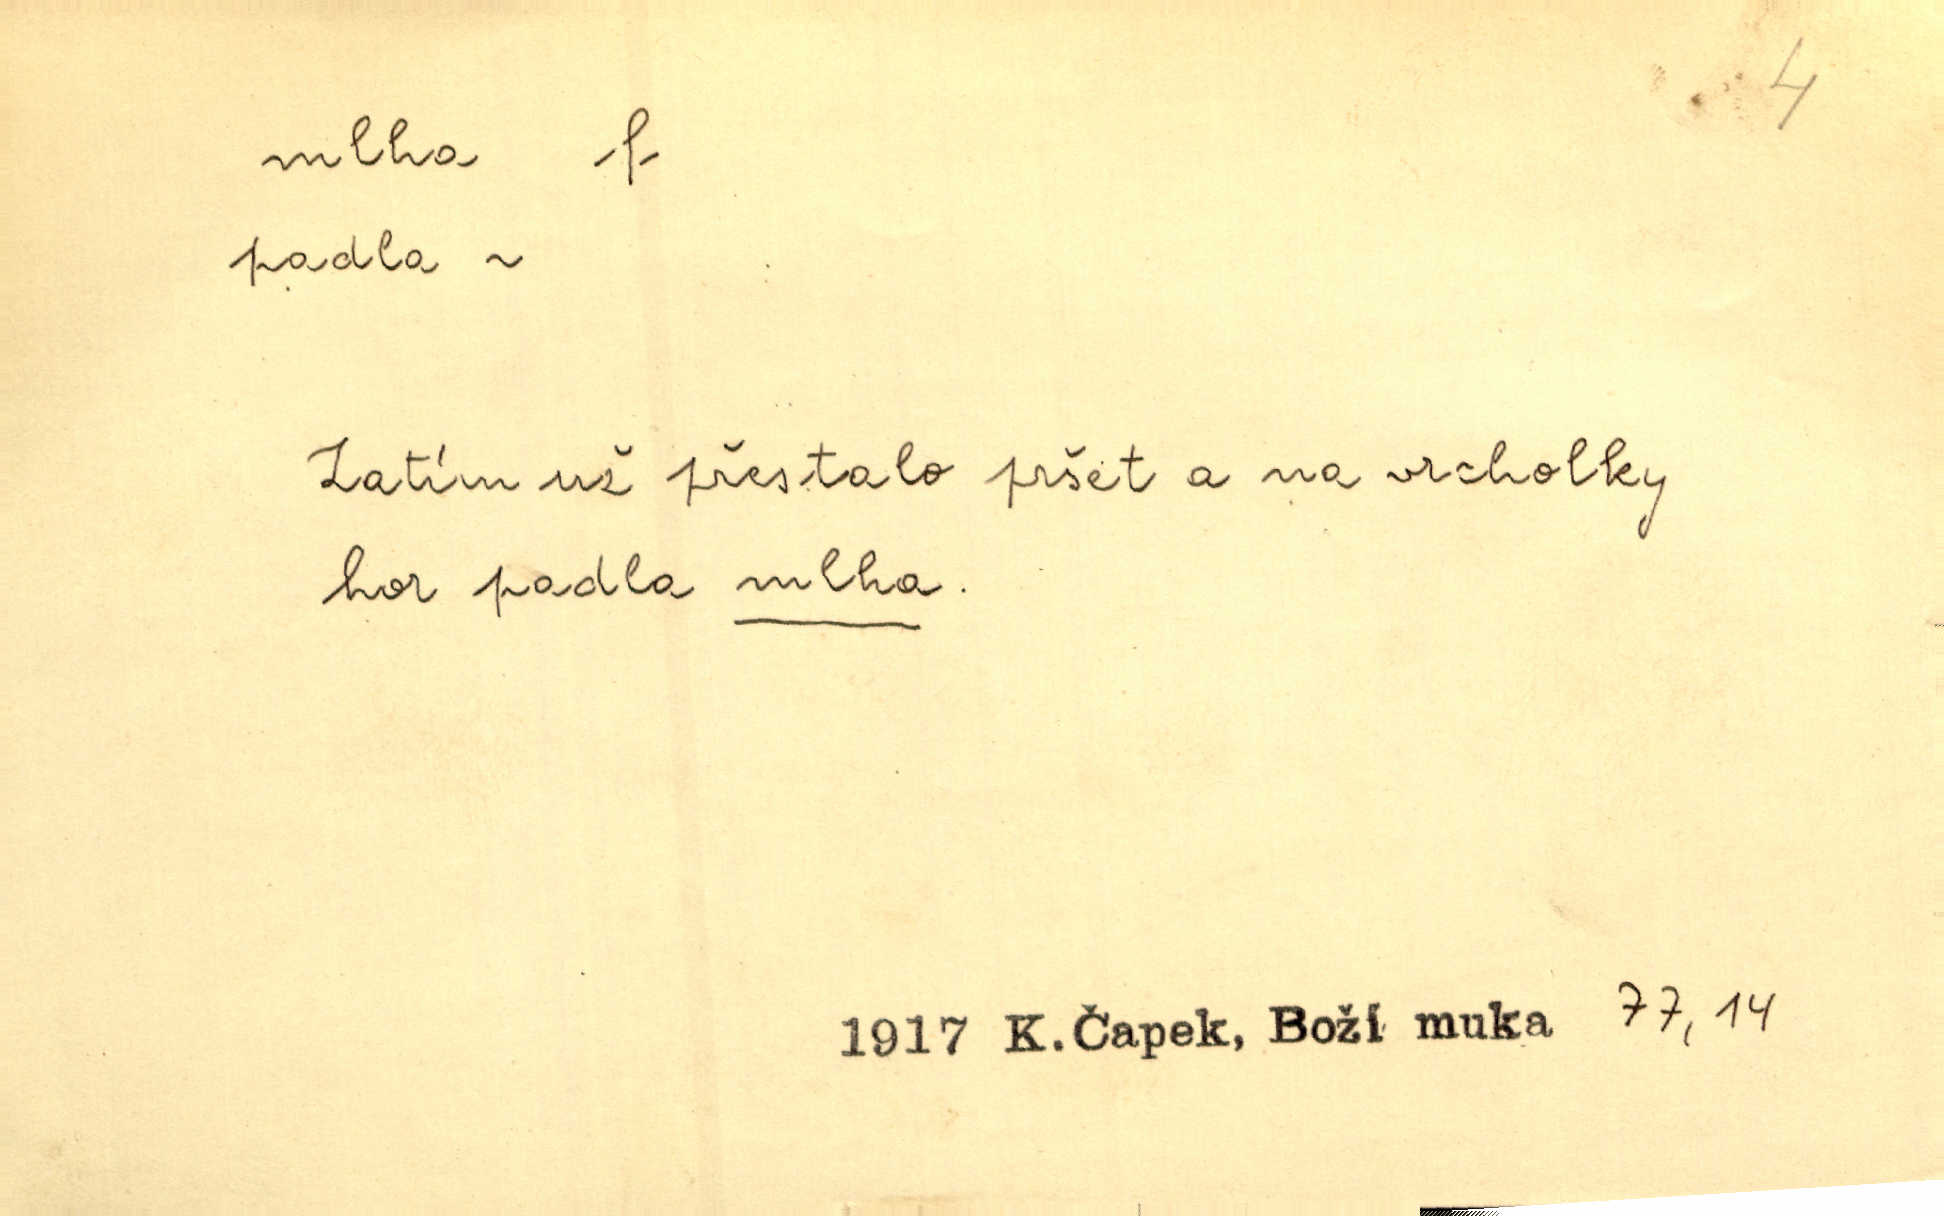 4
mlha -f-
padla ~
Zatím už přestalo pršet a na vrcholky
hor padla mlha.
1917 K. Čapek, Boží muka 77, 14